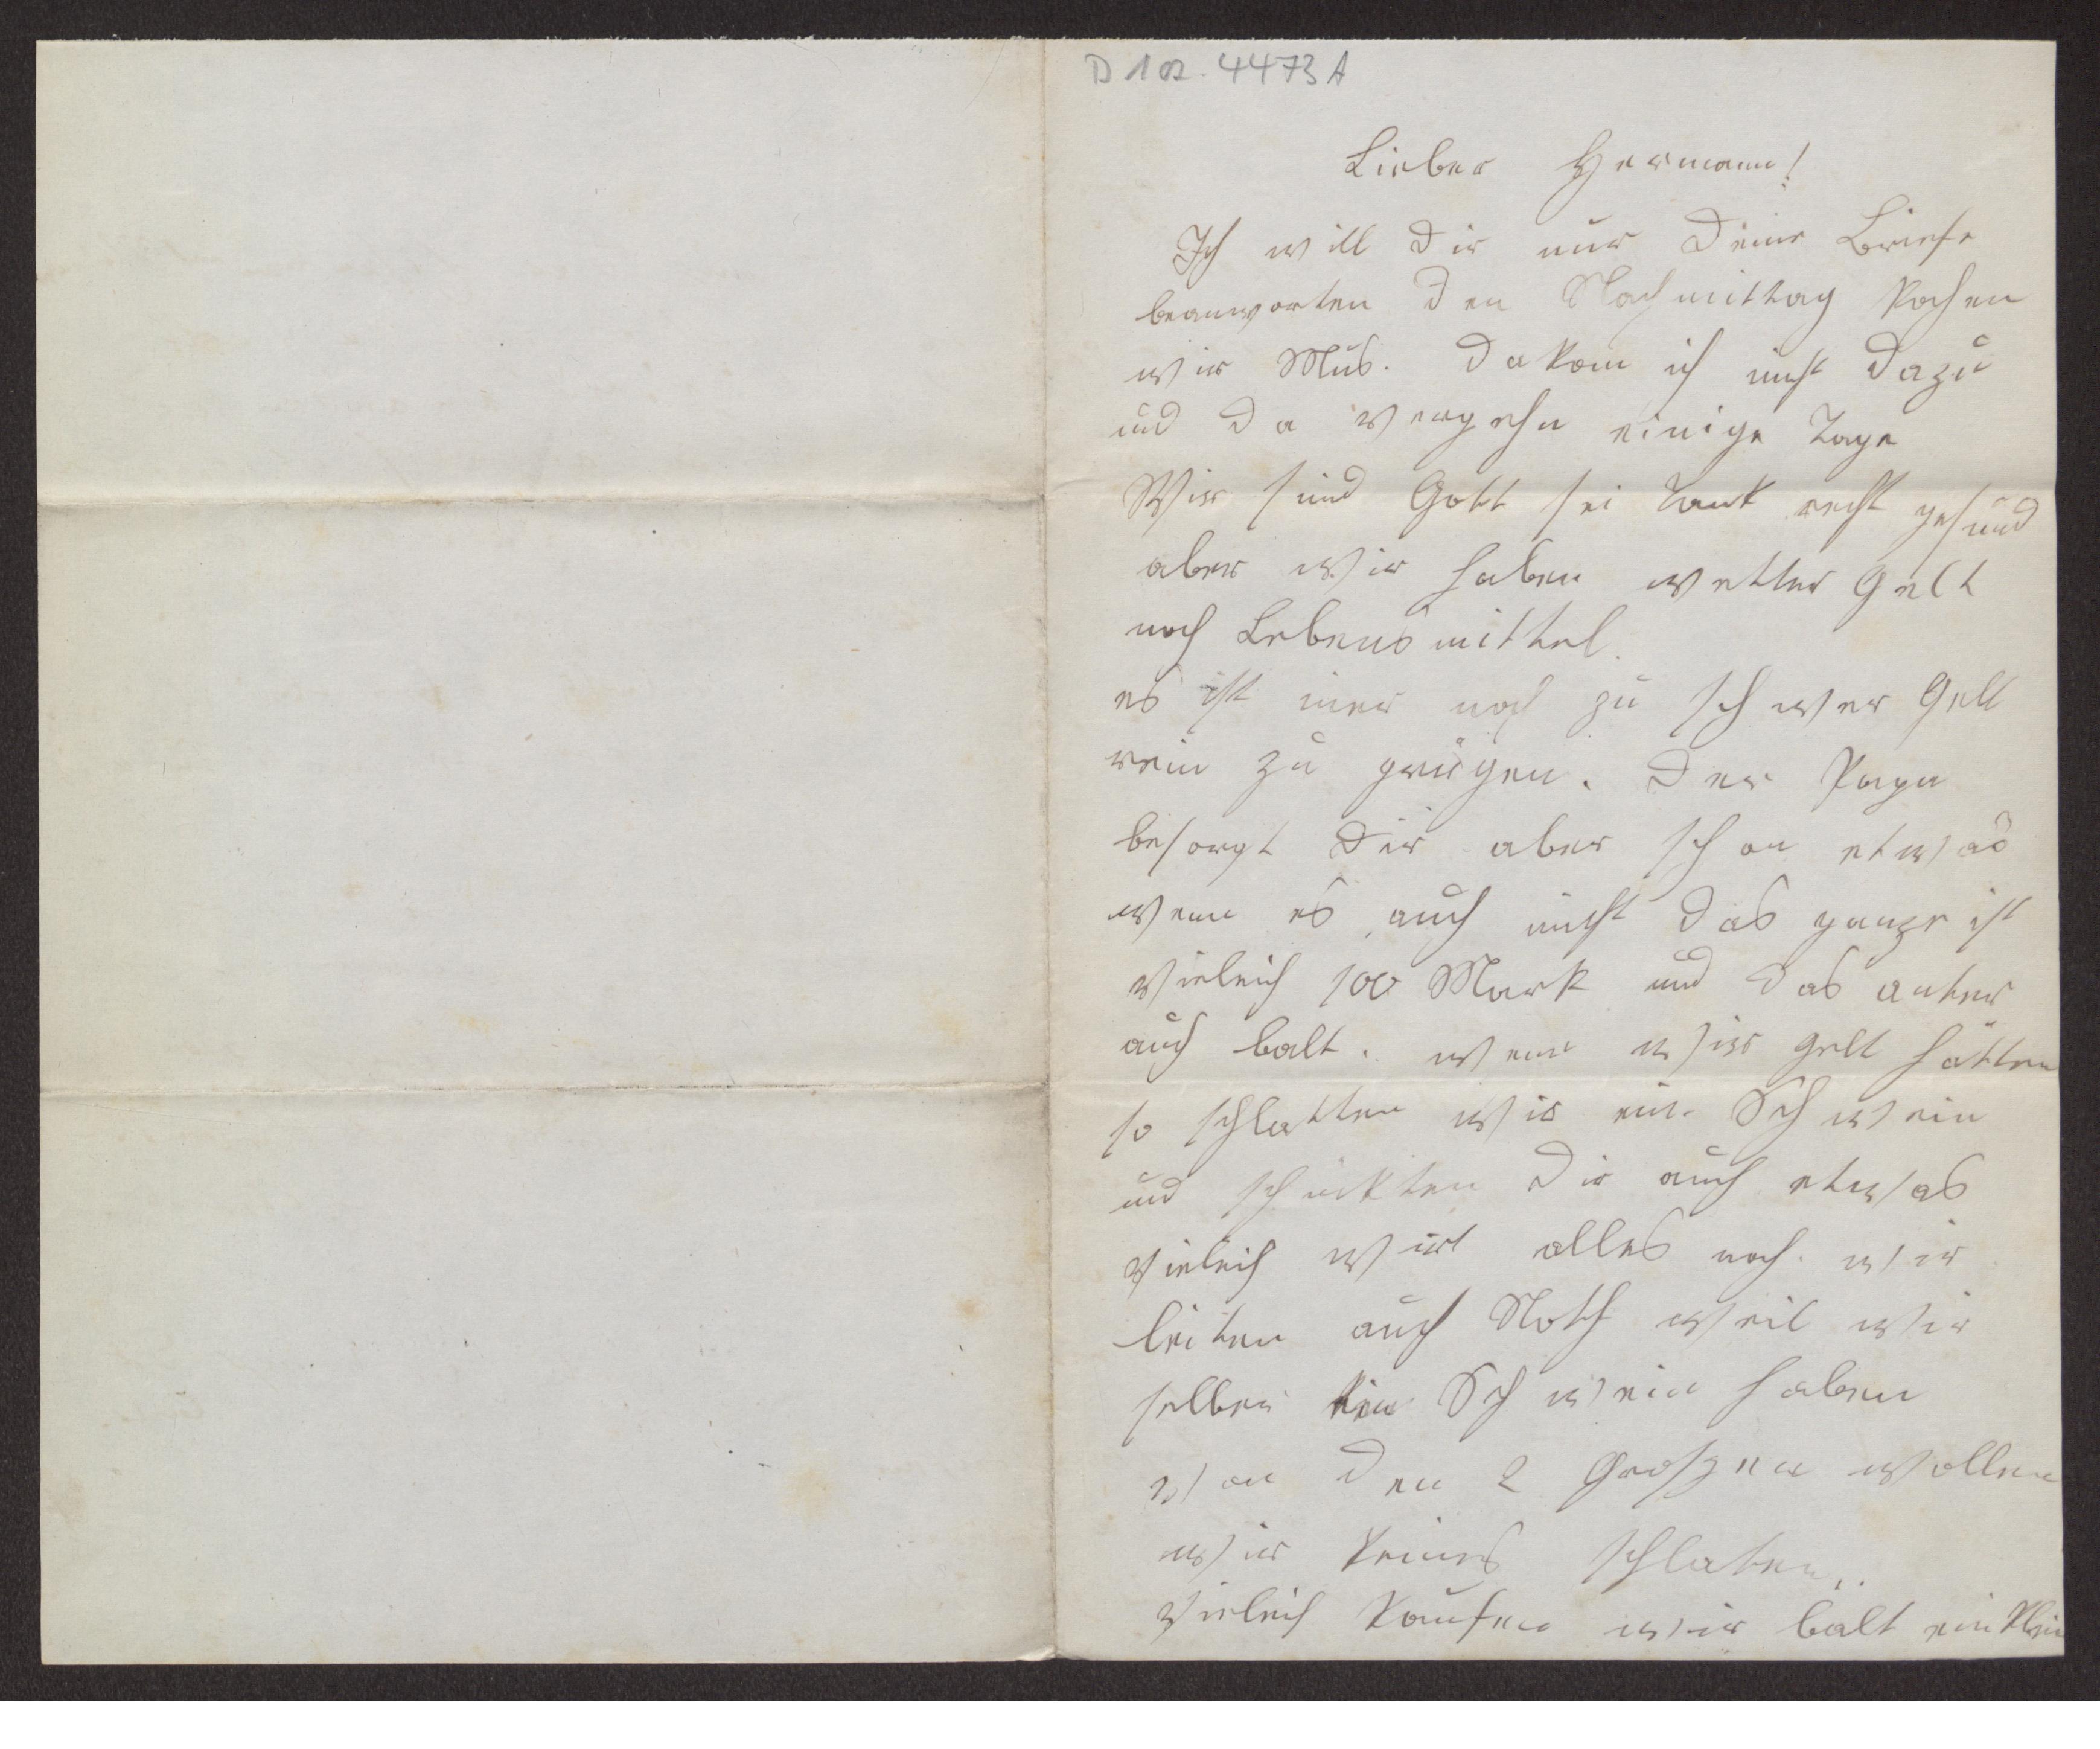 D 102. 4473 A
Lieber Hermann!
Ich will Dir nur Deine Briefe
beanworten den Nachmittag kochen
wir Mus. da kom ich nicht dazu
und da vergehn einige Tage
Wir sind Gott sei Tank recht gesund
aber wir haben wetter Gelt
noch Lebensmittel.
es ist imer noch zu schwer Gelt
rein zu grügen. Der Papa
besorgt Dir aber schon etwas
wenn es auch nicht das ganze ist
vieleich 100 Mark und das anter
auch balt. wenn wir gelt hätten
so schlatten wir ein Schwein
und schickten Dir auch etwas
vieleich wirt alles noch. wir
leiten auch Noth weil wir
selber kein Schwein haben
von den 2 Groszen wollen
wir keines schlaten..
vieleich kaufen wir balt ein klein